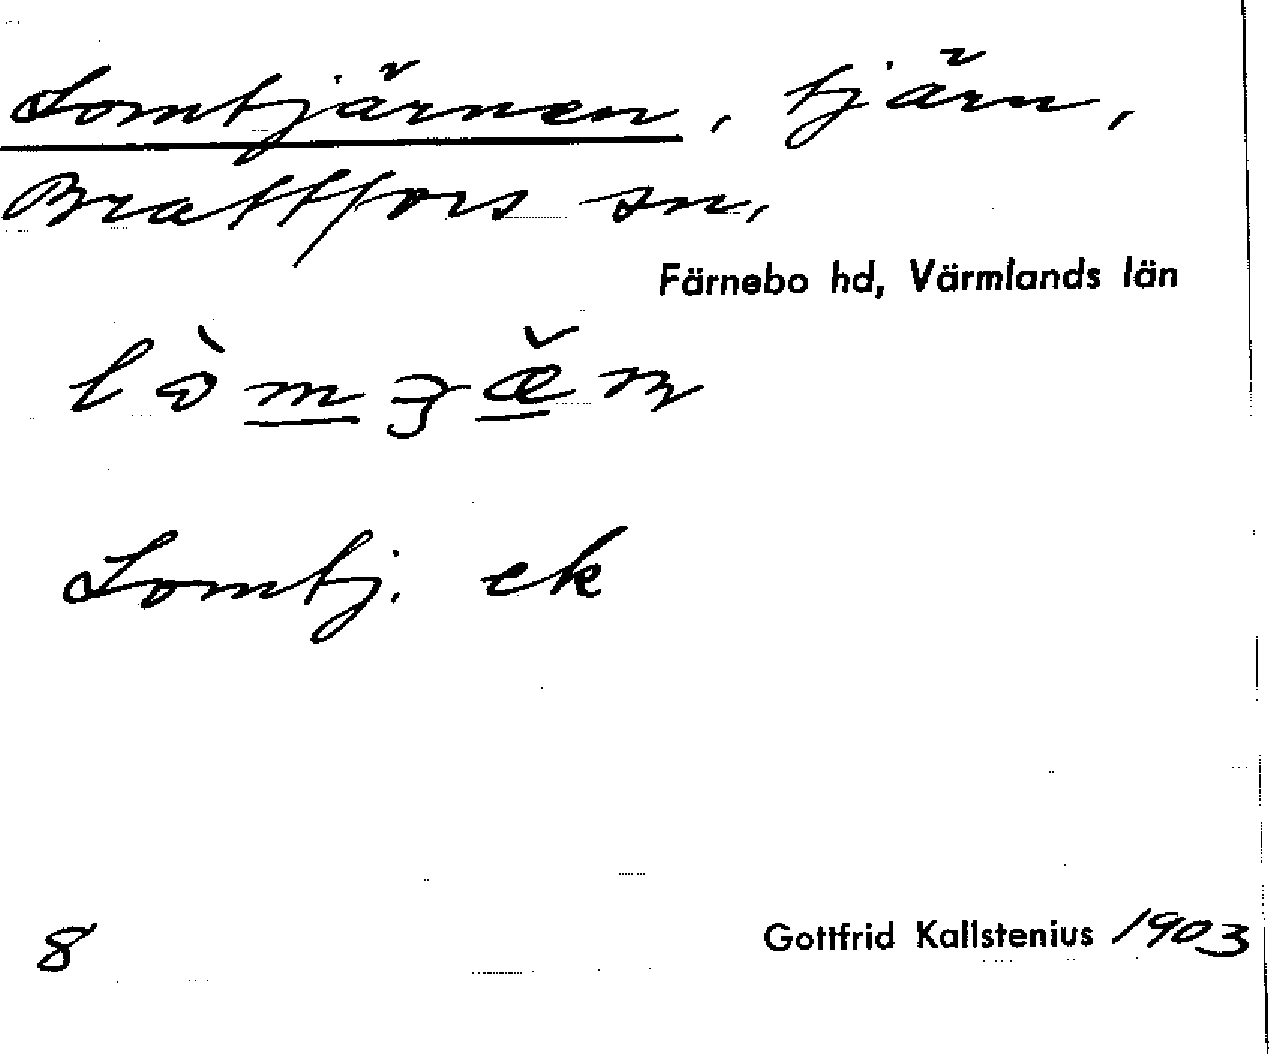 Lomtjärnen, tjärn,
Brattfors sn,
Färnebo hd, Värmlands län
Lomtj. ek
8
Gottfrid Kallstenius 1903